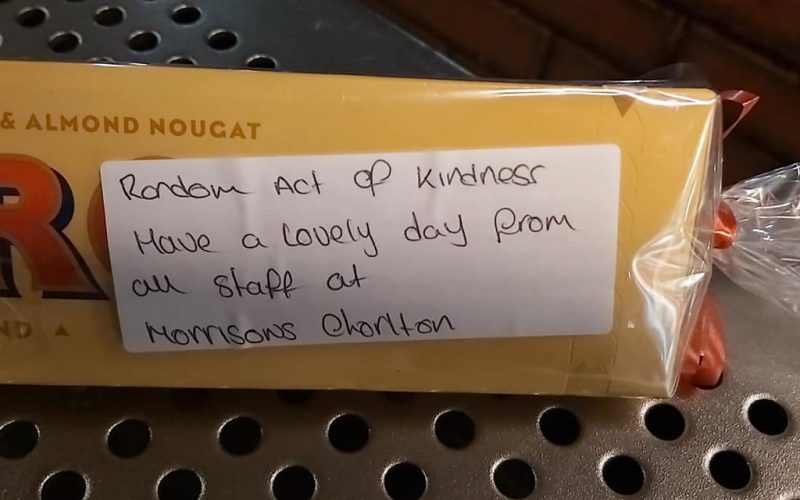 & ALMOND NOUGAT
R
Random Act of Kindness
Have a lovely day from
all staff at
Morrisons Chorlton
ND